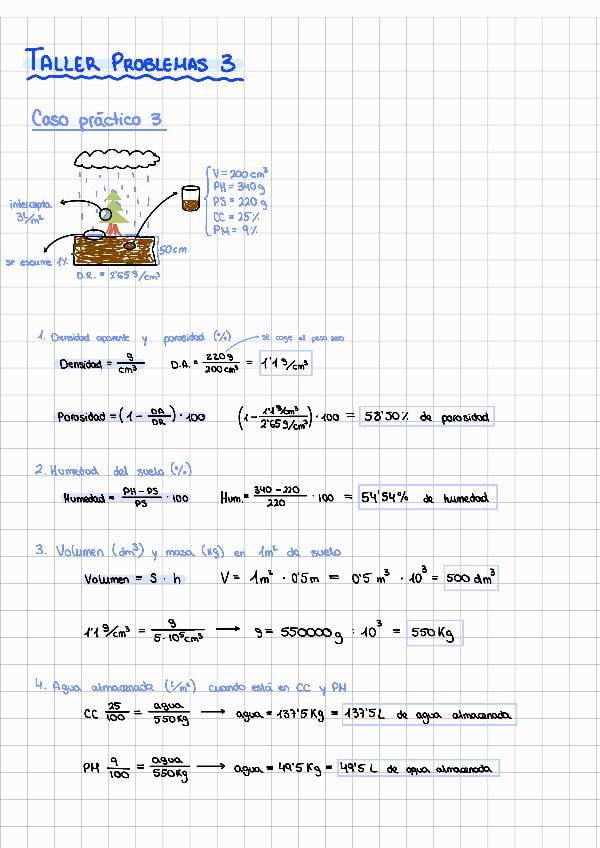 TALLER PROBLEMAS 3
Caso práctico 3
intercepta
3L/m²
se escurre 1%
50cm
D.R. = 2'65 g/cm³
V = 200 cm³
PH = 340 g
PS = 220 g
CC = 25%
PM = 9%
1. Densidad aparente y porosidad (%)
se coge el peso seco
Densidad = g/cm³ D.A. = 220g/200cm³ = 1'1 g/cm³
Porosidad = (1 - DA/DR) · 100 (1 - 1'1 g/cm³/2'65 g/cm³) · 100 = 58'50% de porosidad
2. Humedad del suelo (%)
Humedad = PH - PS/PS · 100 Hum. = 340 - 220/220 · 100 = 54'54% de humedad
3. Volumen (dm³) y masa (Kg) en 1m² de suelo
Volumen = S · h V = 1m² · 0'5m = 0'5 m³ · 10³ = 500 dm³
1'1 g/cm³ = g/5·10⁵cm³ → g = 550000g : 10³ = 550 Kg
4. Agua almacenada (L/m²) cuando está en CC y PM
CC 25/100 = agua/550Kg → agua = 137'5 Kg = 137'5 L de agua almacenada
PM 9/100 = agua/550Kg → agua = 49'5 Kg = 49'5 L de agua almacenada